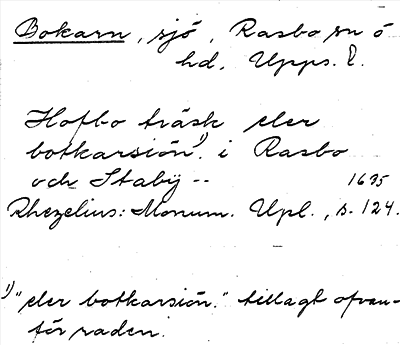 Bokarn, sjö, Rasbo sn o
hd, Upps. l.
Hofbo träsk eler
botkarsiön¹⁾ i Rasbo
och Stabÿ --
1635
Rhezelius: Monum. Upl., s. 124.
¹⁾ "eler botkarsiön." tillagt ofvan-
för raden.